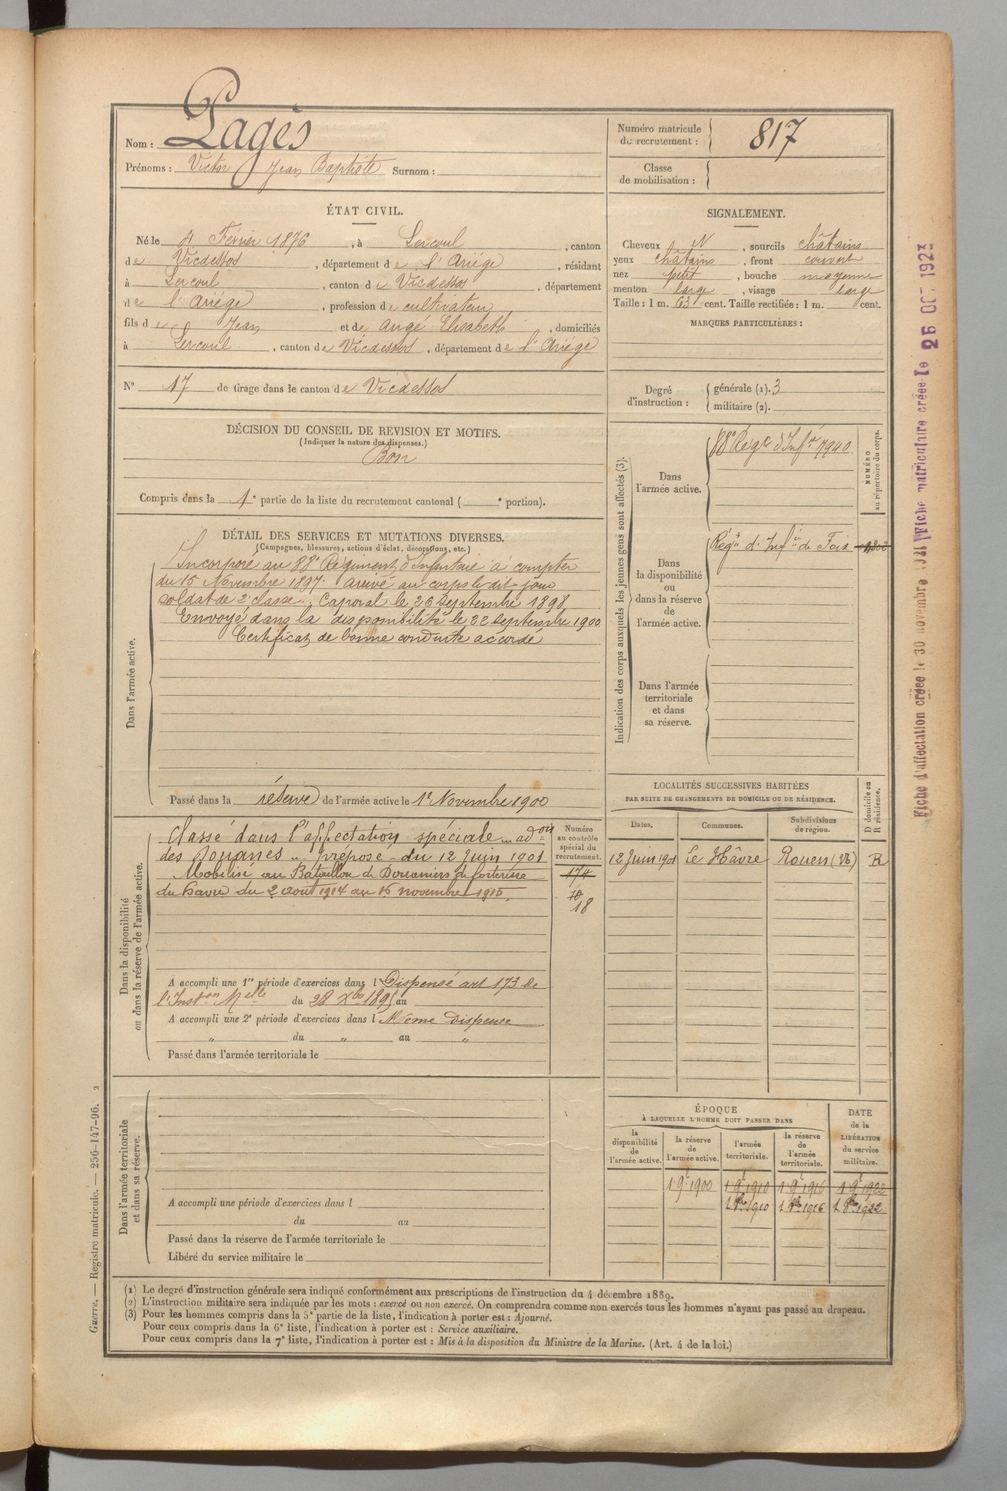 Nom : Pagès
Prénoms : Victor Jean Baptiste Surnom :
Numéro matricule du recrutement : 817
Classe de mobilisation :
ÉTAT CIVIL.
Né le 4 Février 1876, à Lercoul, canton
de Vicdessos, département de l'Ariége, résidant
à Lercoul, canton de Vicdessos, département
de l'Ariége, profession de cultivateur
fils de Jean et de Augé Elisabeth, domiciliés
à Lercoul, canton de Vicdessos, département de l'Ariége
N° 17 de tirage dans le canton de Vicdessos
SIGNALEMENT.
Cheveux N, sourcils châtains
yeux châtains, front couvert
nez petit, bouche moyenne
menton large, visage large
Taille : 1 m. 63 cent. Taille rectifiée : 1 m. cent.
MARQUES PARTICULIÈRES :
Degré d'instruction : générale (1). 3
militaire (2).
DÉCISION DU CONSEIL DE REVISION ET MOTIFS.
(Indiquer la nature des dispenses.)
Bon
Compris dans la 1e partie de la liste du recrutement cantonal ( e portion).
DÉTAIL DES SERVICES ET MUTATIONS DIVERSES.
(Campagnes, blessures, actions d'éclat, décorations, etc.)
Dans l'armée active.
Incorporé au 88e Régiment d'Infanterie à compter
du 15 Novembre 1897. Arrivé au corps le dit jour
soldat de 2e classe. Caporal le 26 Septembre 1898
Envoyé dans la disponibilité le 22 Septembre 1900
Certificat de bonne conduite accordé
Passé dans la réserve de l'armée active le 1e Novembre 1900
Indication des corps auxquels les jeunes gens sont affectés (3).
NUMÉRO au répertoire du corps.
Dans l'armée active.
88e Régt d'Infie 7940
Dans la disponibilité ou dans la réserve de l'armée active.
Régt d'Infie de Foix
Dans l'armée territoriale et dans sa réserve.
Dans la disponibilité ou dans la réserve de l'armée active.
Classé dans l'affectation spéciale
des Douanes préposé du 12 Juin 1901
Mobilisé au Bataillon de Douaniers de forteresse
du havre du 2 août 1914 au 15 novembre 1915
Numéro au contrôle spécial du recrutement.
174
18
A accompli une 1re période d'exercices dans l Dispensé art 173 de
l'Inston Melle du 28 Xbre 1895 au
A accompli une 2e période d'exercices dans l Même dispense
" du " au "
Passé dans l'armée territoriale le
LOCALITÉS SUCCESSIVES HABITÉES
PAR SUITE DE CHANGEMENTS DE DOMICILE OU DE RÉSIDENCE.
Dates. Communes. Subdivisions de région. D domicile ou R résidence.
12 Juin 1901 Le Hâvre Rouen R
Dans l'armée territoriale et dans sa réserve.
A accompli une période d'exercices dans l
du au
Passé dans la réserve de l'armée territoriale le
Libéré du service militaire le
ÉPOQUE
À LAQUELLE L'HOMME DOIT PASSER DANS
la disponibilité de l'armée active. la réserve de l'armée active. l'armée territoriale. la réserve de l'armée territoriale.
DATE de la LIBÉRATION du service militaire.
1 9e 1900 1 9e 1910 1 9e 1916 1 9e 1922
(1) Le degré d'instruction générale sera indiqué conformément aux prescriptions de l'instruction du 4 décembre 1889.
(2) L'instruction militaire sera indiquée par les mots : exercé ou non exercé. On comprendra comme non exercés tous les hommes n'ayant pas passé au drapeau.
(3) Pour les hommes compris dans la 5e partie de la liste, l'indication à porter est : Ajourné.
Pour ceux compris dans la 6e liste, l'indication à porter est : Service auxiliaire.
Pour ceux compris dans la 7e liste, l'indication à porter est : Mis à la disposition du Ministre de la Marine. (Art. 4 de la loi.)
Guerre. — Registre matricule. — 256-147-96. 2
Fiche matriculaire créée le 26 OCT 1923
Fiche d'affectation créée le 30 novembre 1921